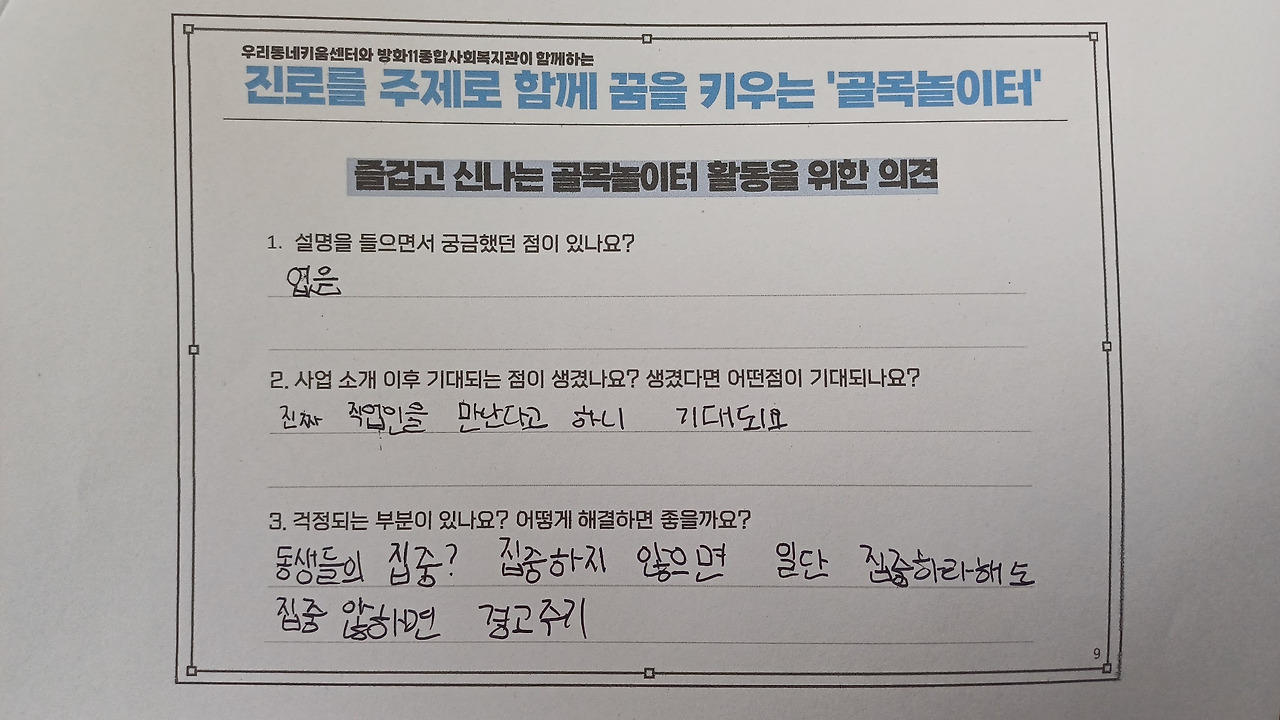 우리동네키움센터와 방화11종합사회복지관이 함께하는
진로를 주제로 함께 꿈을 키우는 '골목놀이터'
즐겁고 신나는 골목놀이터 활동을 위한 의견
1. 설명을 들으면서 궁금했던 점이 있나요?
없은
2. 사업 소개 이후 기대되는 점이 생겼나요? 생겼다면 어떤점이 기대되나요?
진짜 직업인을 만난다고 하니 기대되요
3. 걱정되는 부분이 있나요? 어떻게 해결하면 좋을까요?
동생들의 집중? 집중하지 않으면 일단 집중하라해도
집중 않하면 경고주기
9